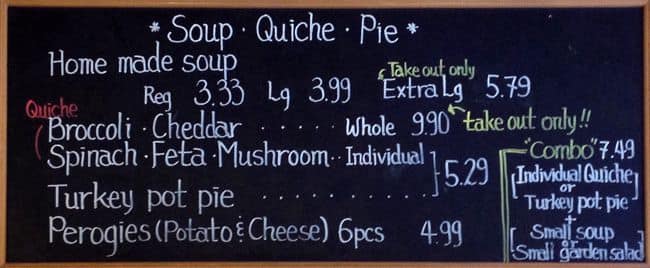 * Soup · Quiche · Pie *
Home made soup
Take out only
Reg 3.33 Lg 3.99 Extra Lg 5.79
Quiche
Broccoli · Cheddar ..... Whole 9.90 take out only!!
Spinach · Feta · Mushroom .. Individual
5.29
Turkey pot pie ..........
Perogies (Potato & Cheese) 6pcs 4.99
"Combo" 7.49
[Individual Quiche]
or
Turkey pot pie
+
[Small soup]
Small garden salad